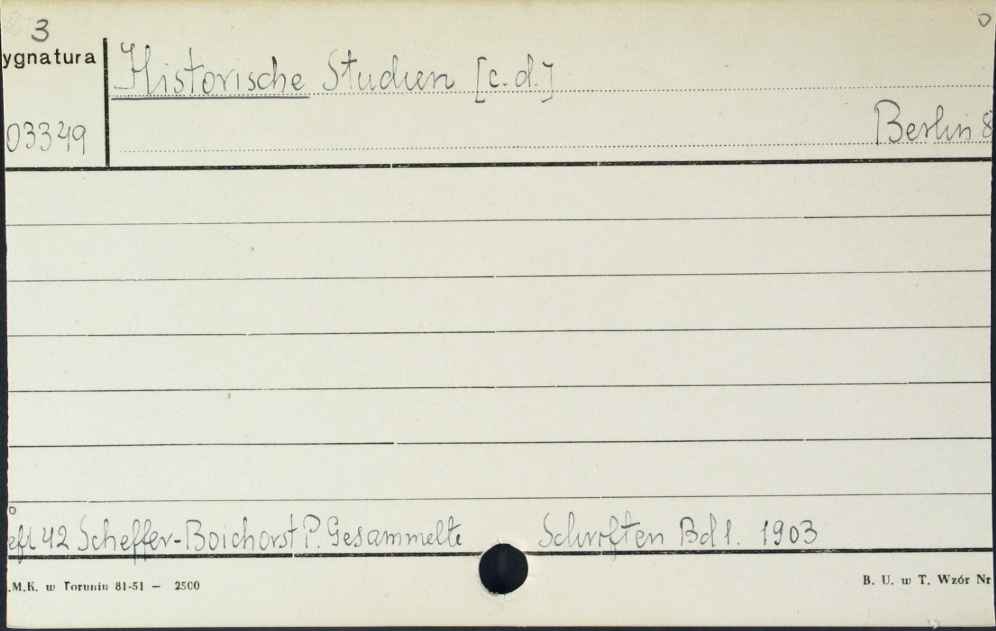 3
ygnatura
Historische Studien [c.d.]
03349
Berlin 8
eft 42 Scheffer-Boichorst P. Gesammelte Schriften Bd 1. 1903
.M.K. w Toruniu 81-51 — 2500
B. U. w T. Wzór Nr